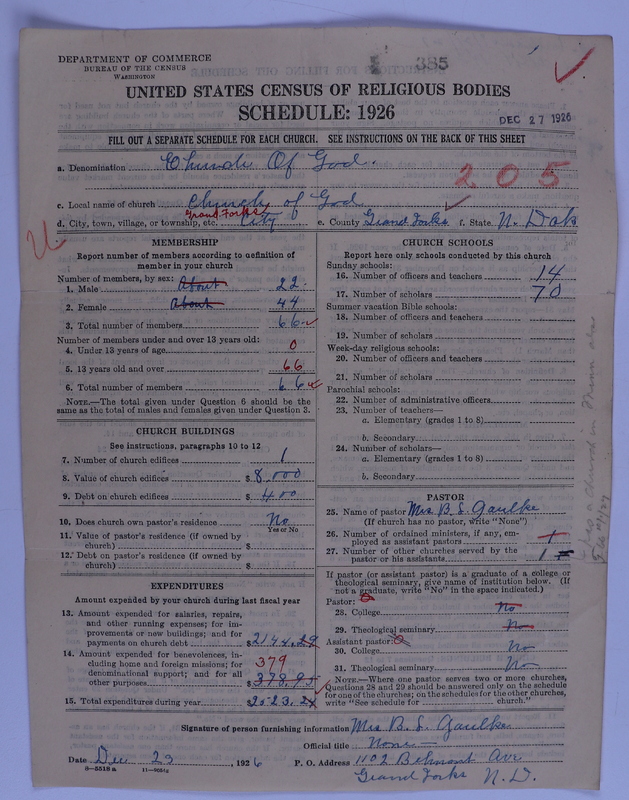 DEPARTMENT OF COMMERCE
BUREAU OF THE CENSUS
WASHINGTON
385
UNITED STATES CENSUS OF RELIGIOUS BODIES
SCHEDULE: 1926
DEC 27 1926
FILL OUT A SEPARATE SCHEDULE FOR EACH CHURCH. SEE INSTRUCTIONS ON THE BACK OF THIS SHEET
a. Denomination Church Of God.
205
c. Local name of church Church of God
d. City, town, village, or township, etc. Grand Forks City e. County Grand Forks f. State N. Dak
MEMBERSHIP
Report number of members according to definition of
member in your church
Number of members, by sex:
1. Male About 22
2. Female About 44
3. Total number of members 66
Number of members under and over 13 years old:
4. Under 13 years of age 0
5. 13 years old and over 66
6. Total number of members 66
NOTE.—The total given under Question 6 should be the
same as the total of males and females given under Question 3.
CHURCH BUILDINGS
See instructions, paragraphs 10 to 12
7. Number of church edifices 1
8. Value of church edifices $ 8000
9. Debt on church edifices $ 400
10. Does church own pastor's residence No
Yes or No
11. Value of pastor's residence (if owned by
church) $
12. Debt on pastor's residence (if owned by
church) $
EXPENDITURES
Amount expended by your church during last fiscal year
13. Amount expended for salaries, repairs,
and other running expenses; for im-
provements or new buildings; and for
payments on church debt $2144.29
14. Amount expended for benevolences, in-
cluding home and foreign missions; for
denominational support; and for all
other purposes 379 $378.95
15. Total expenditures during year $2523.24
CHURCH SCHOOLS
Report here only schools conducted by this church
Sunday schools:
16. Number of officers and teachers 14
17. Number of scholars 70
Summer vacation Bible schools:
18. Number of officers and teachers
19. Number of scholars
Week-day religious schools:
20. Number of officers and teachers
21. Number of scholars
Parochial schools:
22. Number of administrative officers
23. Number of teachers—
a. Elementary (grades 1 to 8)
b. Secondary
24. Number of scholars—
a. Elementary (grades 1 to 8)
b. Secondary
PASTOR
25. Name of pastor Mrs B. S. Gaulke
(If church has no pastor, write "None")
26. Number of ordained ministers, if any, em-
ployed as assistant pastors 1
27. Number of other churches served by the
pastor or his assistants 1
If pastor (or assistant pastor) is a graduate of a college or
theological seminary, give name of institution below. (If
not a graduate, write "No" in the space indicated.)
Pastor:
28. College No
29. Theological seminary No
Assistant pastor:
30. College No
31. Theological seminary No
NOTE.—Where one pastor serves two or more churches,
Questions 28 and 29 should be answered only on the schedule
for one of the churches; on the schedules for the other churches,
write "See schedule for church."
Signature of person furnishing information Mrs B. S. Gaulke
Official title None
Date Dec 23, 1926 P. O. Address 1102 Belmont Ave
Grand Forks N. D.
8—5518 a